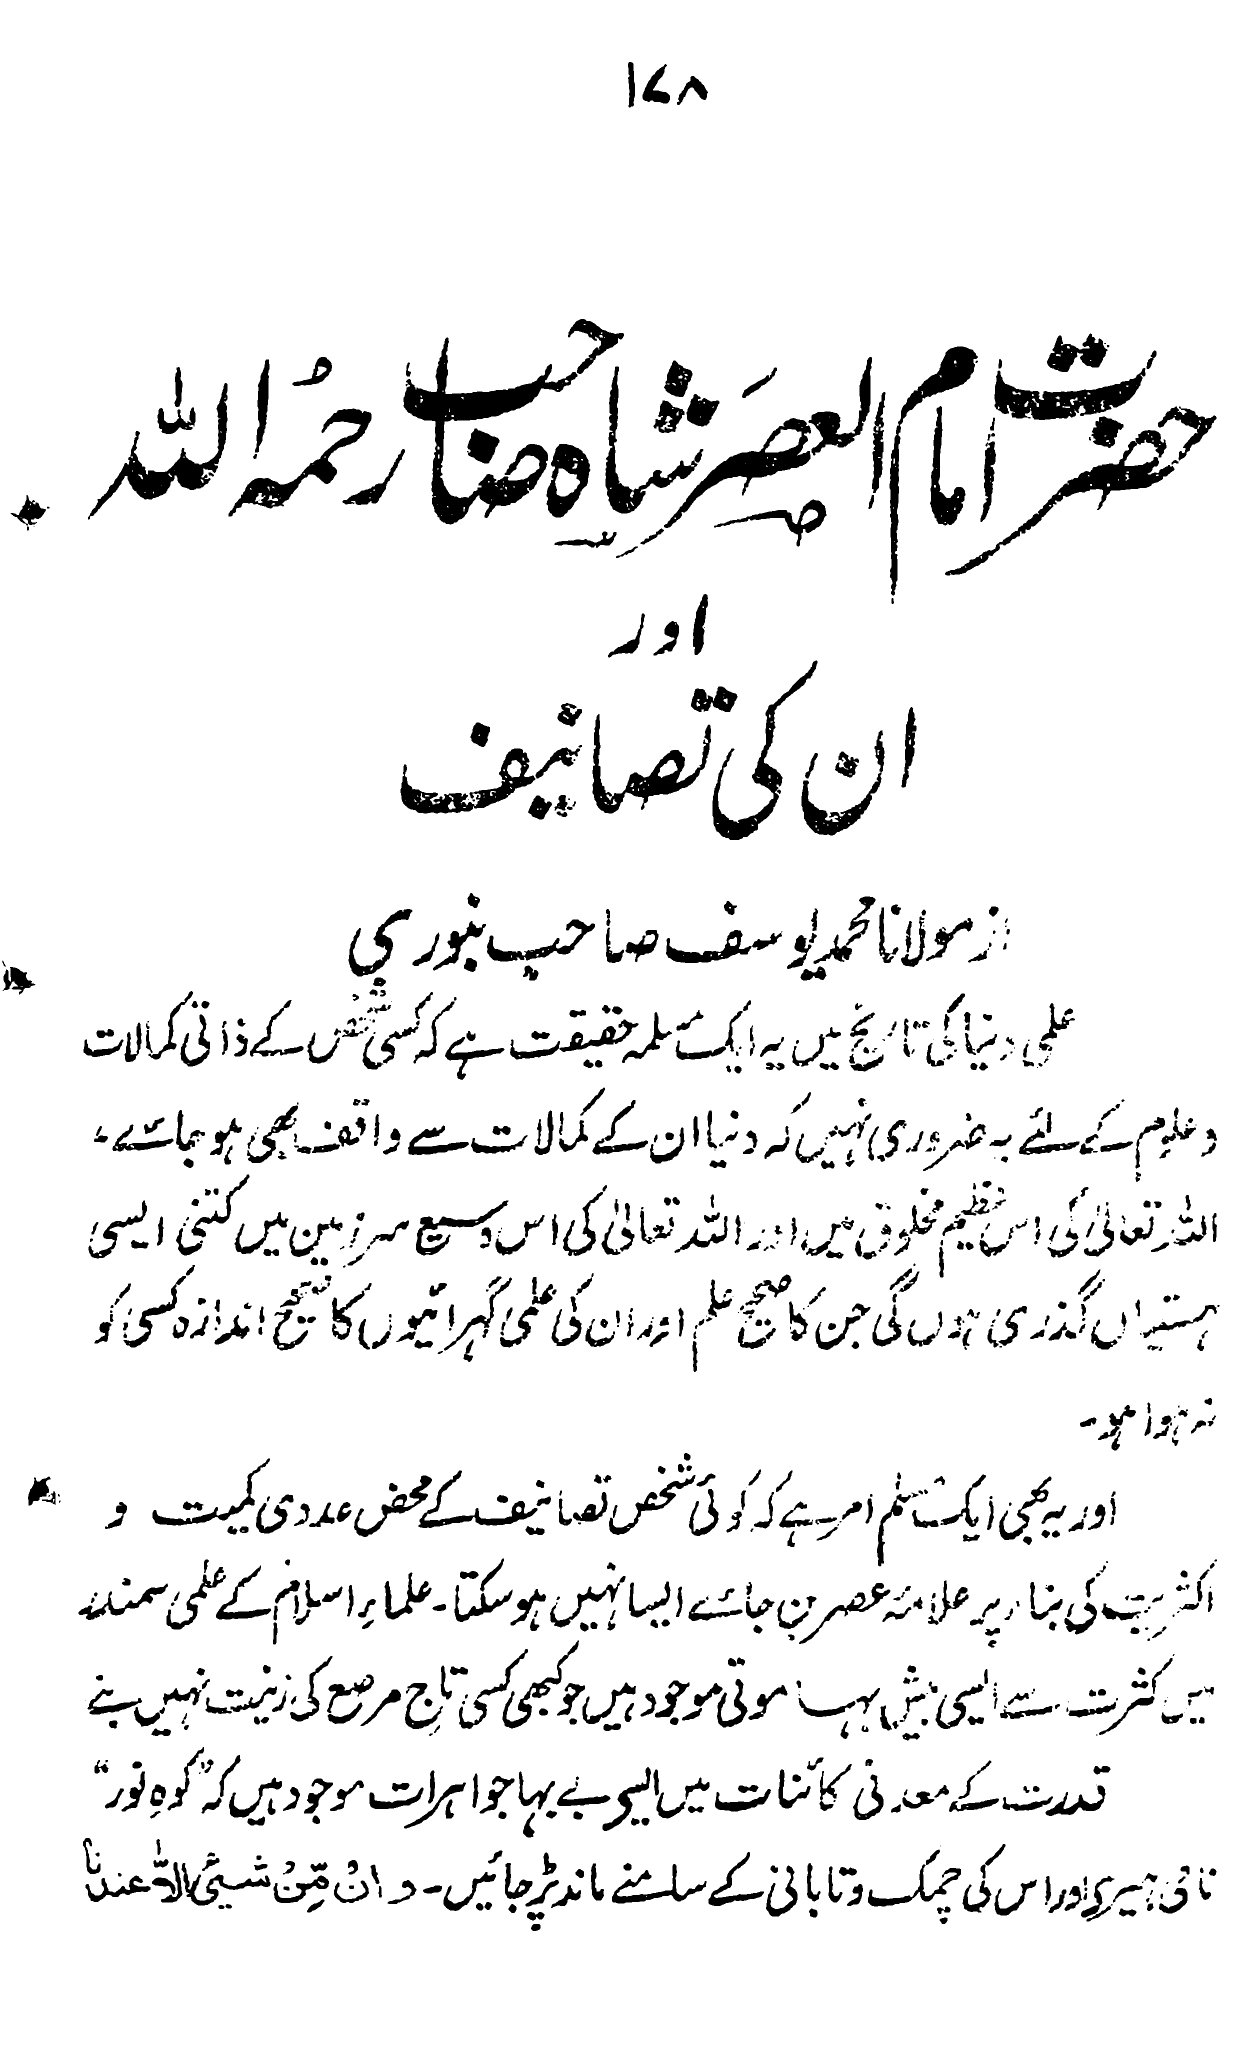 ۱۷۸
حضرت امام العصر شاہ صاحب رحمہ اللہ
اور
ان کی تصانیف
از مولانا محمد یوسف صاحب بنوری
علمی دنیا کی تاریخ میں یہ ایک مسلمہ حقیقت ہے کہ کسی شخص کے ذاتی کمالات
و علوم کے لئے یہ ضروری نہیں کہ دنیا ان کے کمالات سے واقف بھی ہو جائے،
اللہ تعالیٰ کی اس عظیم مخلوق میں اور اللہ تعالیٰ کی اس وسیع سرزمین میں کتنی ایسی
ہستیاں گذری ہوں گی جن کا صحیح علم اور ان کی علمی گہرائیوں کا صحیح اندازہ کسی کو
نہ ہوا ہو۔
اور یہ بھی ایک مسلم امر ہے کہ کوئی شخص تصانیف کے محض عددی کمیت و
اکثریت کی بناء پر علامۂ عصر بن جائے ایسا نہیں ہو سکتا۔ علماءِ اسلام کے علمی سمندر
میں کثرت سے ایسی بیش بہا موتی موجود ہیں جو کبھی کسی تاج مرصع کی زینت نہیں بنے
قدرت کے معدنی کائنات میں ایسے بے بہا جواہرات موجود ہیں کہ "کوہِ نور"
نامی ہیرے اور اس کی چمک و تابانی کے سامنے ماند پڑ جائیں۔ و انْ مِّنْ شیئی الاّ عندنا